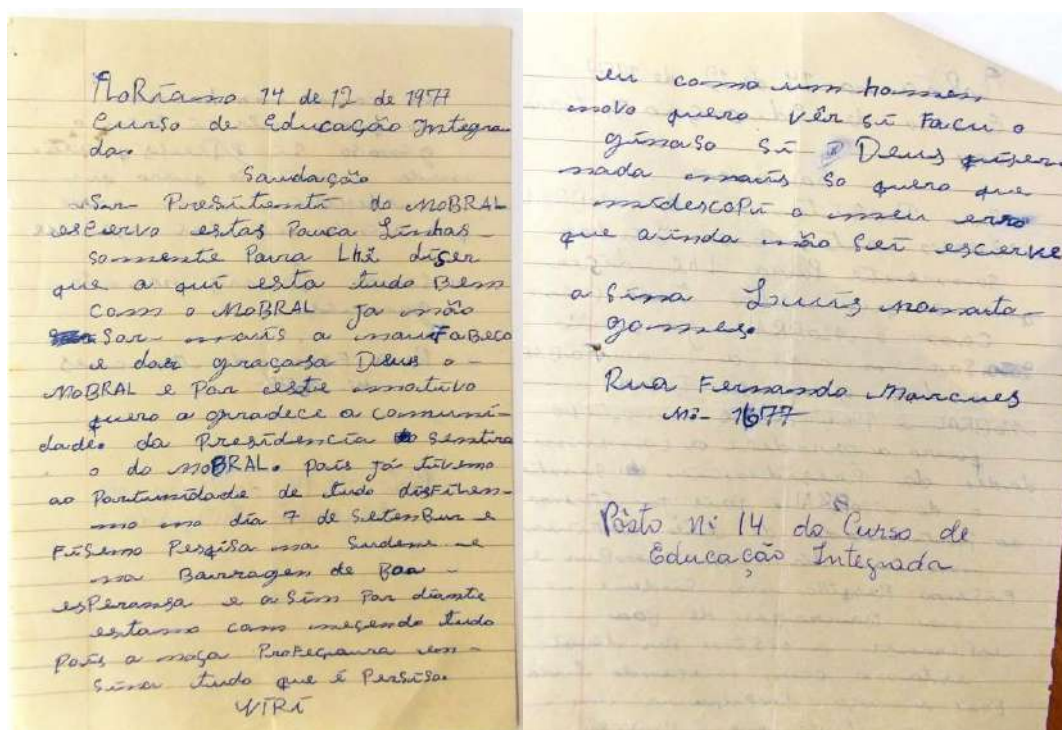 FloRiano 14 de 12 de 1977
Curso de Educação Integra
da.
Saudação
Sar- Presitenti do MOBRAL
esCervo estas Pouca Linhas-
somente Para Lhê diser
que a qui esta tudo Bem
com o MOBRAL ja não
Sar- mais a naufaBeco
e dar graçasa Deus o-
MOBRAL e Por este motivo
quero a gradece a comuni-
dade. da Presidencia sentira
o do MOBRAL. pois já tivemo
ao Partunidade de tudo disFilem-
mo no dia 7 de SetenBur e
Fisemo Pesqisa na Sudene e
na Barragen de Boa-
esPeransa e a Sim Por diante
estamo com nesendo tudo
Pois a noça ProFeçaura en-
Sina tudo que é Persiso.
VIRI
eu como um homen
novo quero vêr si Facu o
ginaso Si Deus quiser
nada mais So quero que
midescoPi o meu erro
que ainda não Sei escierve
a Sina Luuis nonata-
gomes.
Rua Fernando Marcues
Nº- 1677
Pôsto Nº 14 do Curso de
Educação Integrada